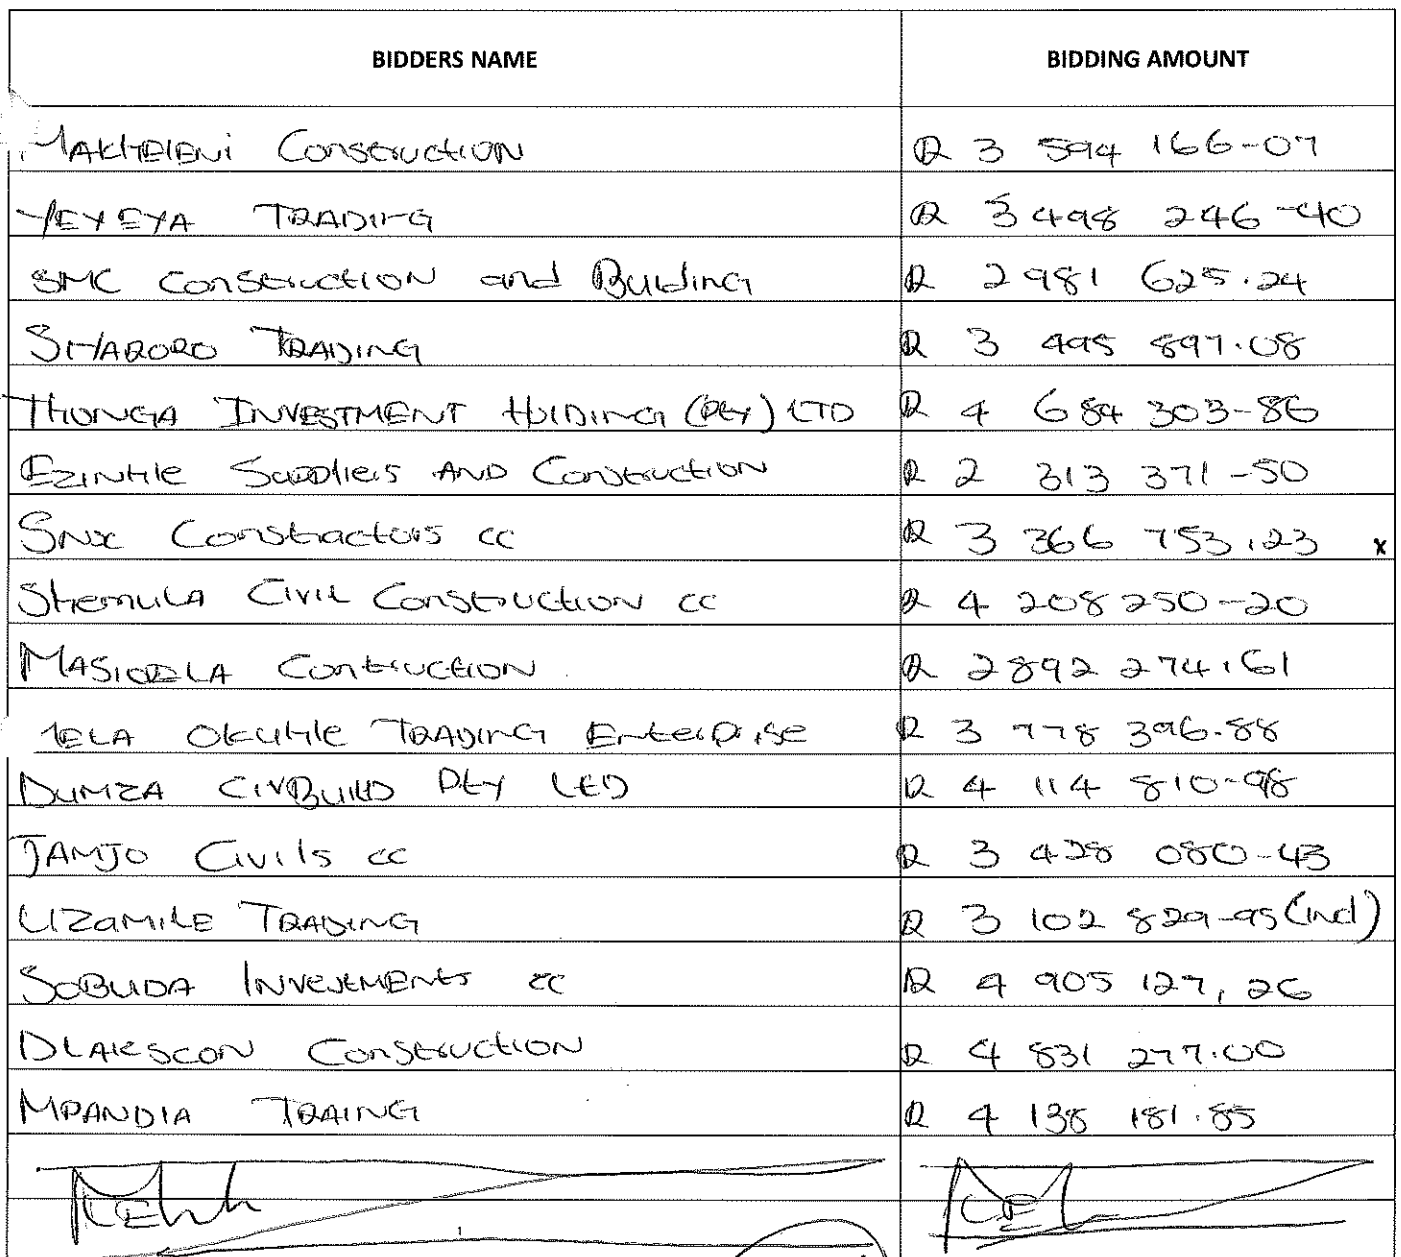 BIDDERS NAME BIDDING AMOUNT
MAKHELENI Construction R 3 594 166-07
YEYEYA TRADING R 3 498 246-40
SMC Construction and Building R 2 981 625.24
SHABORO TRADING R 3 495 897.08
THONGA INVESTMENT HOLDING (PTY) LTD R 4 684 303-86
EZINHLE Suppliers AND Construction R 2 313 371-50
SNX Constractors cc R 3 366 753.23 x
Shemula Civil Construction cc R 4 208 250-20
Contruction R 2892 274.61
MELA OKUHLE TRADING Enterprise R 3 778 396.88
DUMZA CIVBUILD PTY LTD R 4 114 810-98
JAMJO Civils cc R 3 428 080-43
UZAMILE TRADING R 3 102 829-95 (incl)
SOBUDA INVESTMENTS cc R 4 905 127, 26
DLAKSCON Construction R 4 831 277.00
TRAING R 4 138 181.85